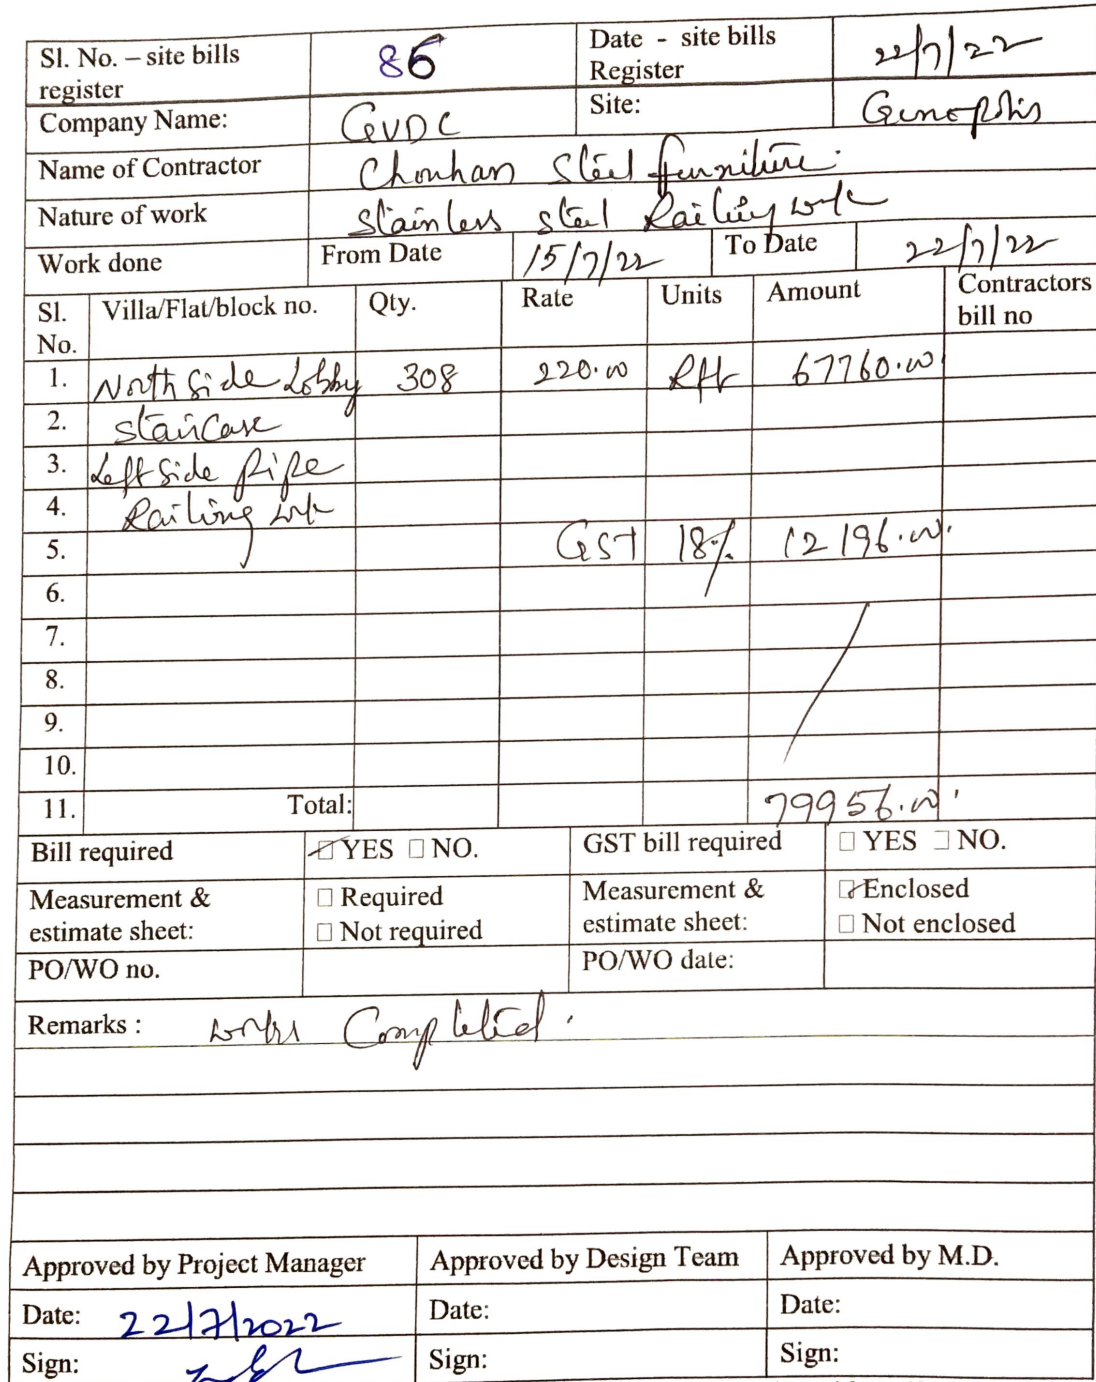 Sl. No. – site bills register 86 Date - site bills Register 22/7/22
Company Name: GVDC Site: Genopolis
Name of Contractor Chouhan Steel furniture.
Nature of work Stainless steel Railing work
Work done From Date 15/7/22 To Date 22/7/22
Sl. No. Villa/Flat/block no. Qty. Rate Units Amount Contractors bill no
1. North Side Lobby 308 220.00 Rft 67760.00
2. Staircase
3. Left Side pipe
4. Railing work
5. GST 18% 12196.00
6.
7.
8.
9.
10.
11. Total: 79956.00
Bill required YES □ NO. GST bill required □ YES □ NO.
Measurement & estimate sheet: □ Required □ Not required Measurement & estimate sheet: Enclosed □ Not enclosed
PO/WO no. PO/WO date:
Remarks : works Completed.
Approved by Project Manager Approved by Design Team Approved by M.D.
Date: 22/7/2022 Date: Date:
Sign: Sign: Sign: